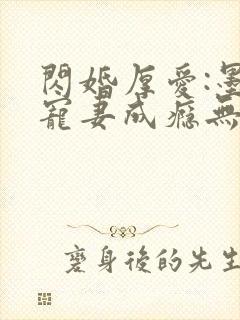 閃婚厚愛:墨
寵妻成癮無
襄身後的先生